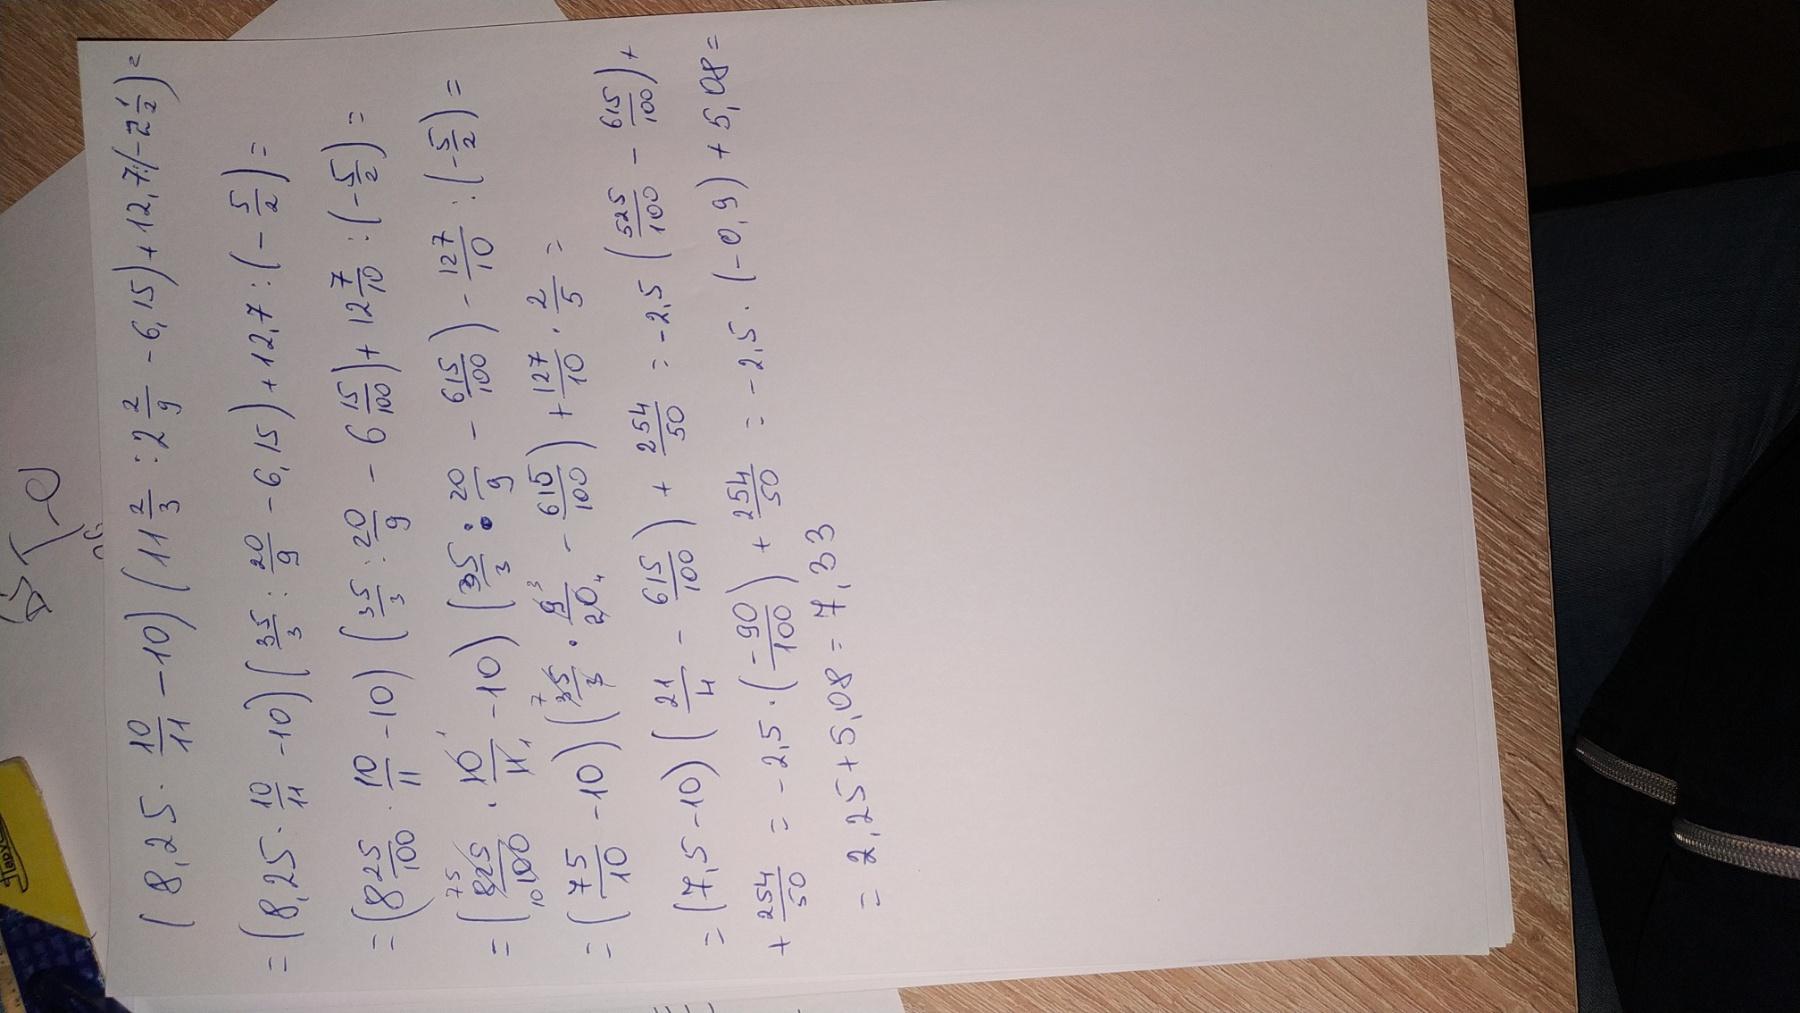 (8,25 · 10/11 - 10) (11 2/3 : 2 2/9 - 6,15) + 12,7 : (-2 1/2) =
= (8,25 · 10/11 - 10) (35/3 : 20/9 - 6,15) + 12,7 : (- 5/2) =
= (8 25/100 · 10/11 - 10) (35/3 : 20/9 - 6 15/100) + 12 7/10 : (- 5/2) =
= (825/100 · 10/11 - 10) (35/3 : 20/9 - 615/100) - 127/10 : (- 5/2) =
= (75/10 - 10) (35/3 · 9/20 - 615/100) + 127/10 · 2/5 =
= (7,5 - 10) (21/4 - 615/100) + 254/50 = -2,5 (525/100 - 615/100) +
+ 254/50 = -2,5 · (-90/100) + 254/50 = -2,5 · (-0,9) + 5,08 =
= 2,25 + 5,08 = 7,33